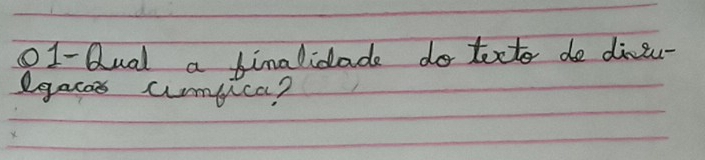 01-Qual a finalidade do texto de divu-
lgacão cimfica?